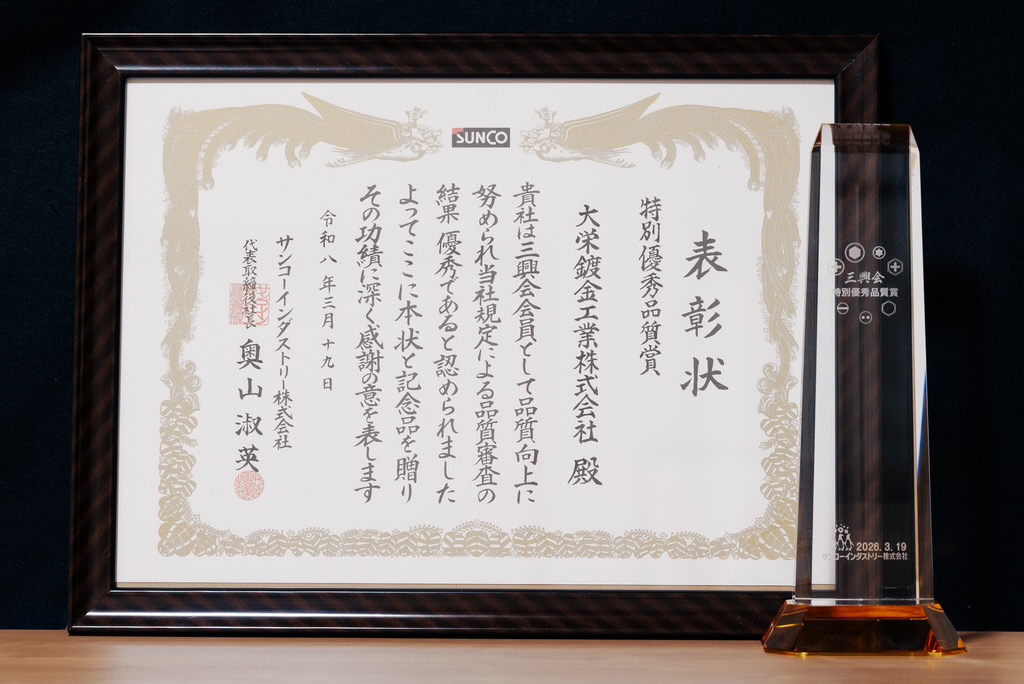 SUNCO
表彰状
特別優秀品質賞
大栄鍍金工業株式会社 殿
貴社は三興会会員として品質向上に
努められ当社規定による品質審査の
結果優秀であると認められました
よってここに本状と記念品を贈り
その功績に深く感謝の意を表します
令和八年三月十九日
サンコーインダストリー株式会社
代表取締役社長 奥山淑英
三興会
特別優秀品質賞
2026.3.19
サンコーインダストリー株式会社